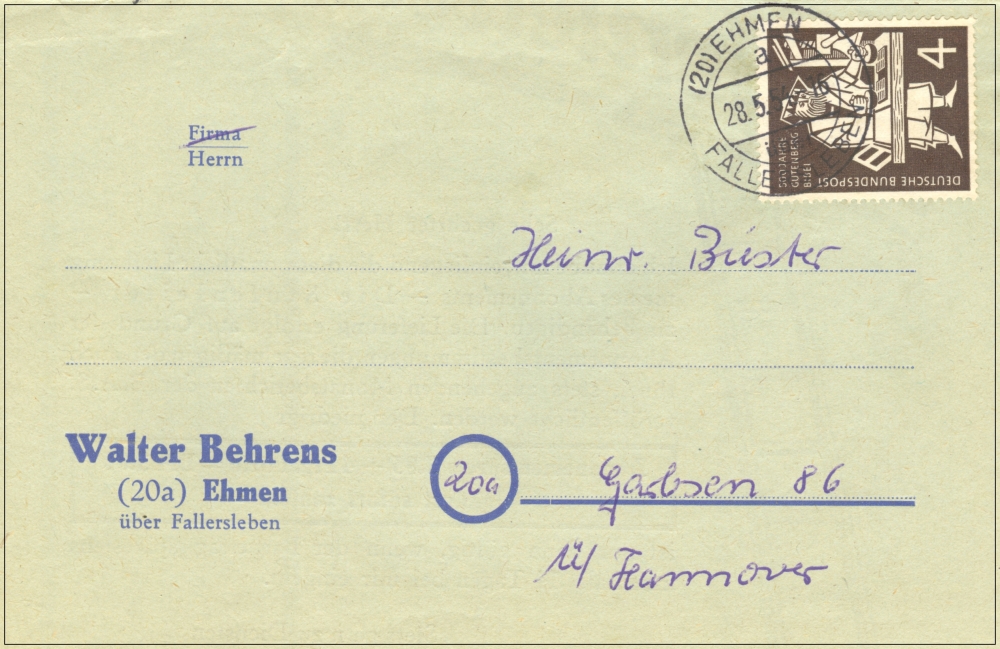 (20) EHMEN
a
28.5.5 16
FALLE LEBEN
4
500 JAHRE
GUTENBERG
BIBEL
DEUTSCHE BUNDESPOST
Firma
Herrn
Heinr. Büster
Walter Behrens
(20a) Ehmen
über Fallersleben
20a
Garbsen 86
ü/ Hannover